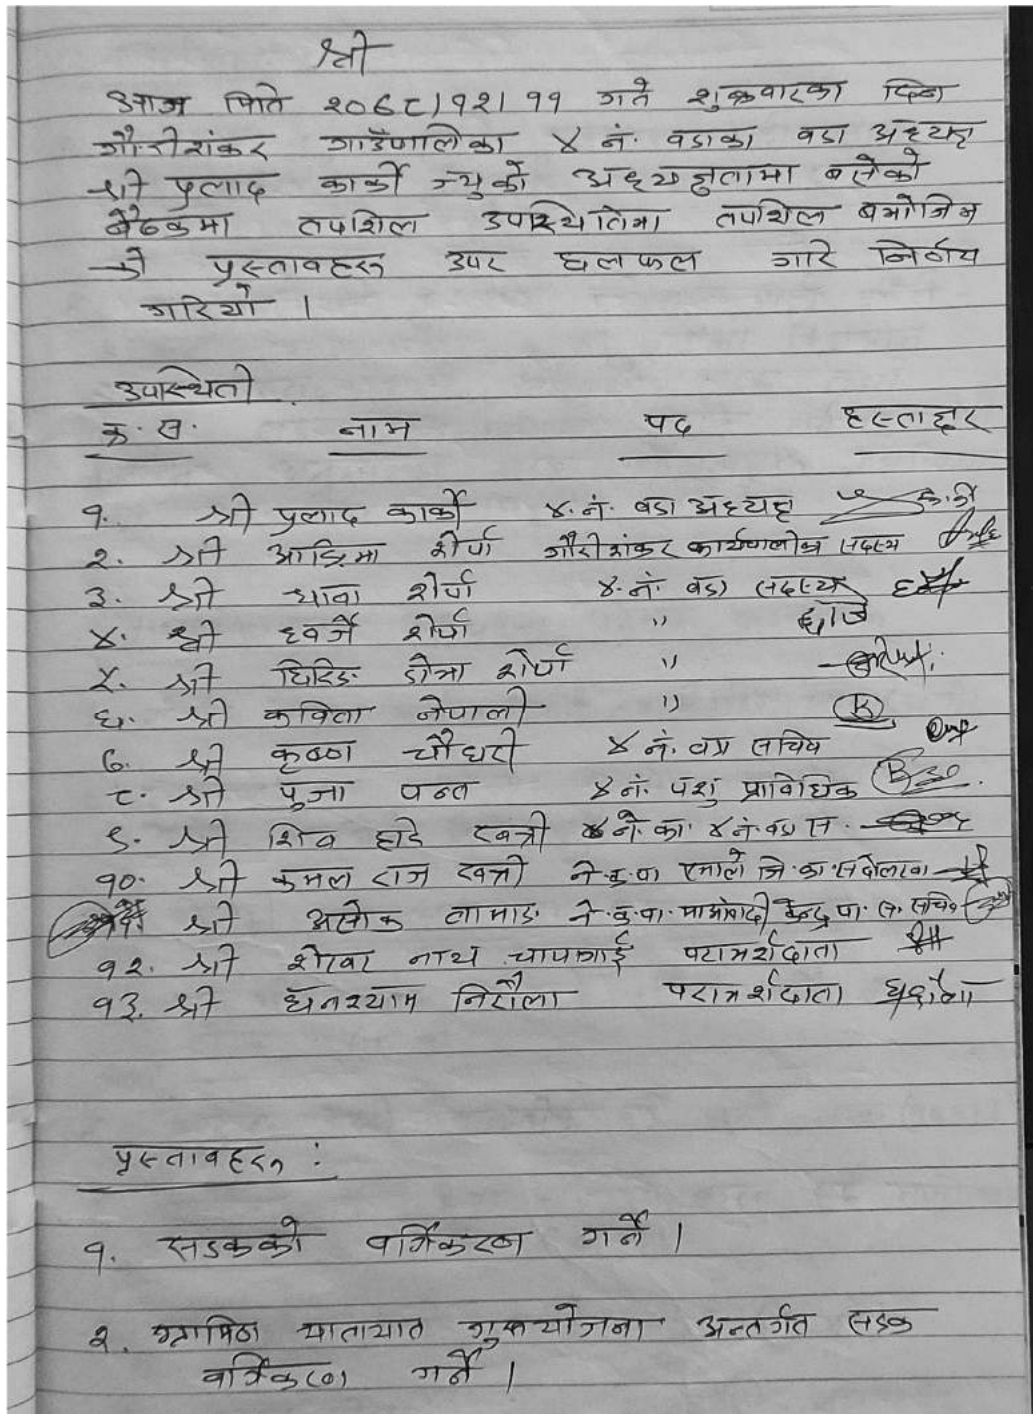 श्री
आज मिति २०७८।१२।११ गते शुक्रवारका दिन
गौरीशंकर गाउँपालिका ४ नं. वडाका वडा अध्यक्ष
श्री प्रलाद कार्की ज्यूको अध्यक्षतामा बसेको
बैठकमा तपशिल उपस्थितिमा तपशिल बमोजिम
को प्रस्तावहरु उपर छलफल गरि निर्णय
गरियो ।
उपस्थिती
क्र. स. नाम पद हस्ताक्षर
१. श्री प्रलाद कार्की ४. नं. वडा अध्यक्ष
२. श्री शेर्पा गौरीशंकर सदस्य
३. श्री शेर्पा ४. नं. वडा सदस्य
४. श्री शेर्पा "
५. श्री शेर्पा "
६. श्री कविता नेपाली "
७. श्री कृष्ण चौधरी ४ नं. वडा सचिव
८. श्री पुजा पन्त ४ नं. पशु प्राविधिक
९. श्री शिव खत्री ने. का. ४ नं. वडा स.
१०. श्री कमल राज खत्री एमाले
श्री लामाङ ने. क. पा. माओवादी केन्द्र पा. स. सचिव
१२. श्री नाथ चापागाई परामर्शदाता
१३. श्री घनश्याम निरौला परामर्शदाता
प्रस्तावहरु :
१. सडकको वर्गिकरण गर्ने ।
२. ग्रामिण यातायात गुरुयोजना अन्तर्गत सडक
वर्गिकरण गर्ने ।